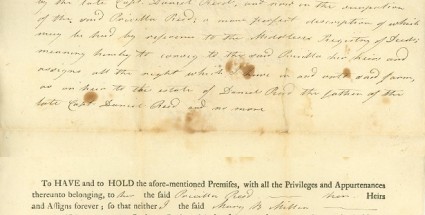 by the late Capt. Daniel Reed, and now in the occupation
of the said Priscilla Reed; a more perfect description of which
may be had by reference to the Middlesex Registry of Deeds;
meaning hereby to convey to the said Priscilla her heirs and
assigns all the right which I have in and unto said farm,
as an heir to the estate of Daniel Reed the father of the
late Capt Daniel Reed and no more
To HAVE and to HOLD the afore-mentioned Premiſes, with all the Privileges and Appurtenances
thereunto belonging, to her the said Priscilla Reed her Heirs
and Aſſigns forever; ſo that neither I the said Mary B Miller